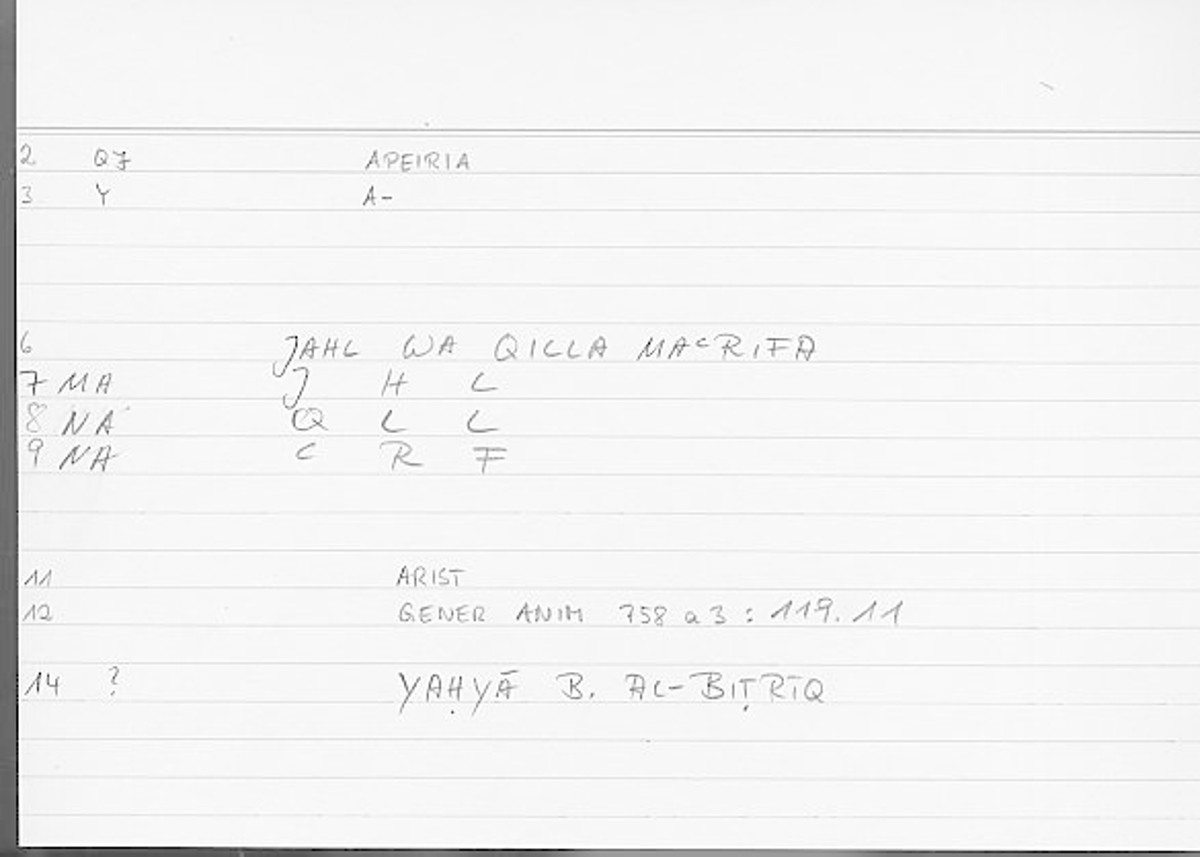 2 QJ APEIRIA
3 Y A-
6 JAHL WA QILLA MAᶜRIFA
7 MA J H L
8 NA Q L L
9 NA ᶜ R F
11 ARIST
12 GENER ANIM 758 a 3 : 119.11
14 ? YAḤYĀ B. AL-BIṬRĪQ